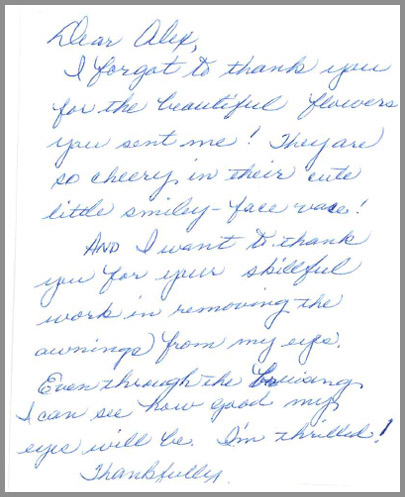 Dear Alex,
I forgot to thank you
for the beautiful flowers
you sent me! They are
so cheery, in their cute
little smiley-face vase!
AND I want to thank
you for your skillful
work in removing the
awnings) from my eyes.
Even through the bruising,
I can see how good my
eyes will be. I'm thrilled!
Thankfully,